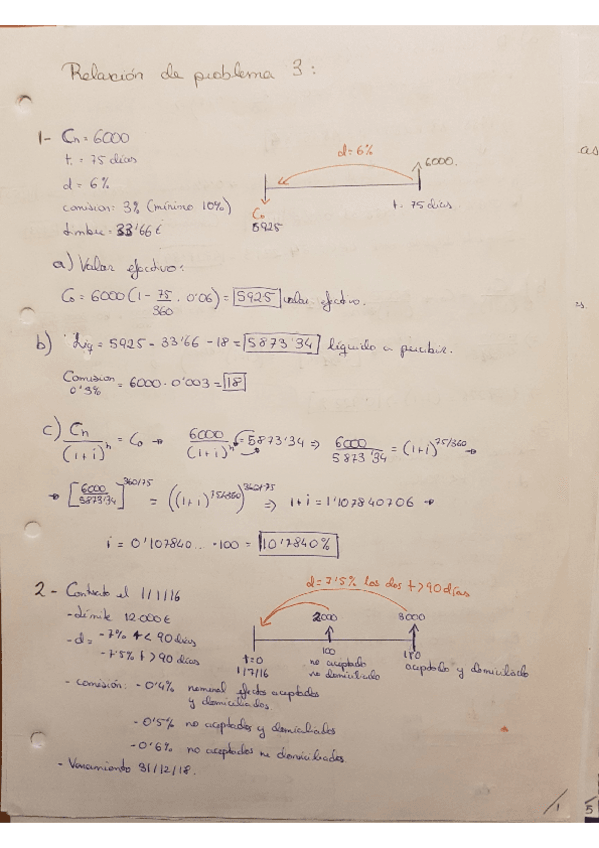 Relación de problema 3:
1- Cn = 6000
t. = 75 días
d = 6%
comision: 3% (mínimo 10%)
timbre = 33'66 €
d = 6%
6000.
C₀
5925
t. 75 días
a) Valor efectivo:
C₀ = 6000 (1 - 75/360 · 0'06) = 5925 valor efectivo.
b) Liq = 5925 - 33'66 - 18 = 5873'34 líquido a percibir.
Comision 0'3% = 6000 · 0'003 = 18
c) Cn/(1+i)ⁿ = C₀ → 6000/(1+i)ⁿ = 5873'34 ⇒ 6000/5873'34 = (1+i)^75/360 →
→ [6000/5873'34]^360/75 = ((1+i)^75/360)^360/75 ⇒ 1+i = 1'107840706 →
i = 0'107840.. · 100 = 10'7840%
2- Contrato el 1/1/16
- límite 12.000 €
- d = - 7% t < 90 días
- 7'5% t > 90 días
d = 7'5% los dos t > 90 días
2000
3000
t=0
1/7/16
100
no aceptado
no domiciliado
180
aceptado y domiciliado
- comisión: - 0'4% nominal efectos aceptados
y domiciliados
- 0'5% no aceptados y domiciliados
- 0'6% no aceptados ni domiciliados
- Vencimiento 31/12/18.
as
es
/1
5